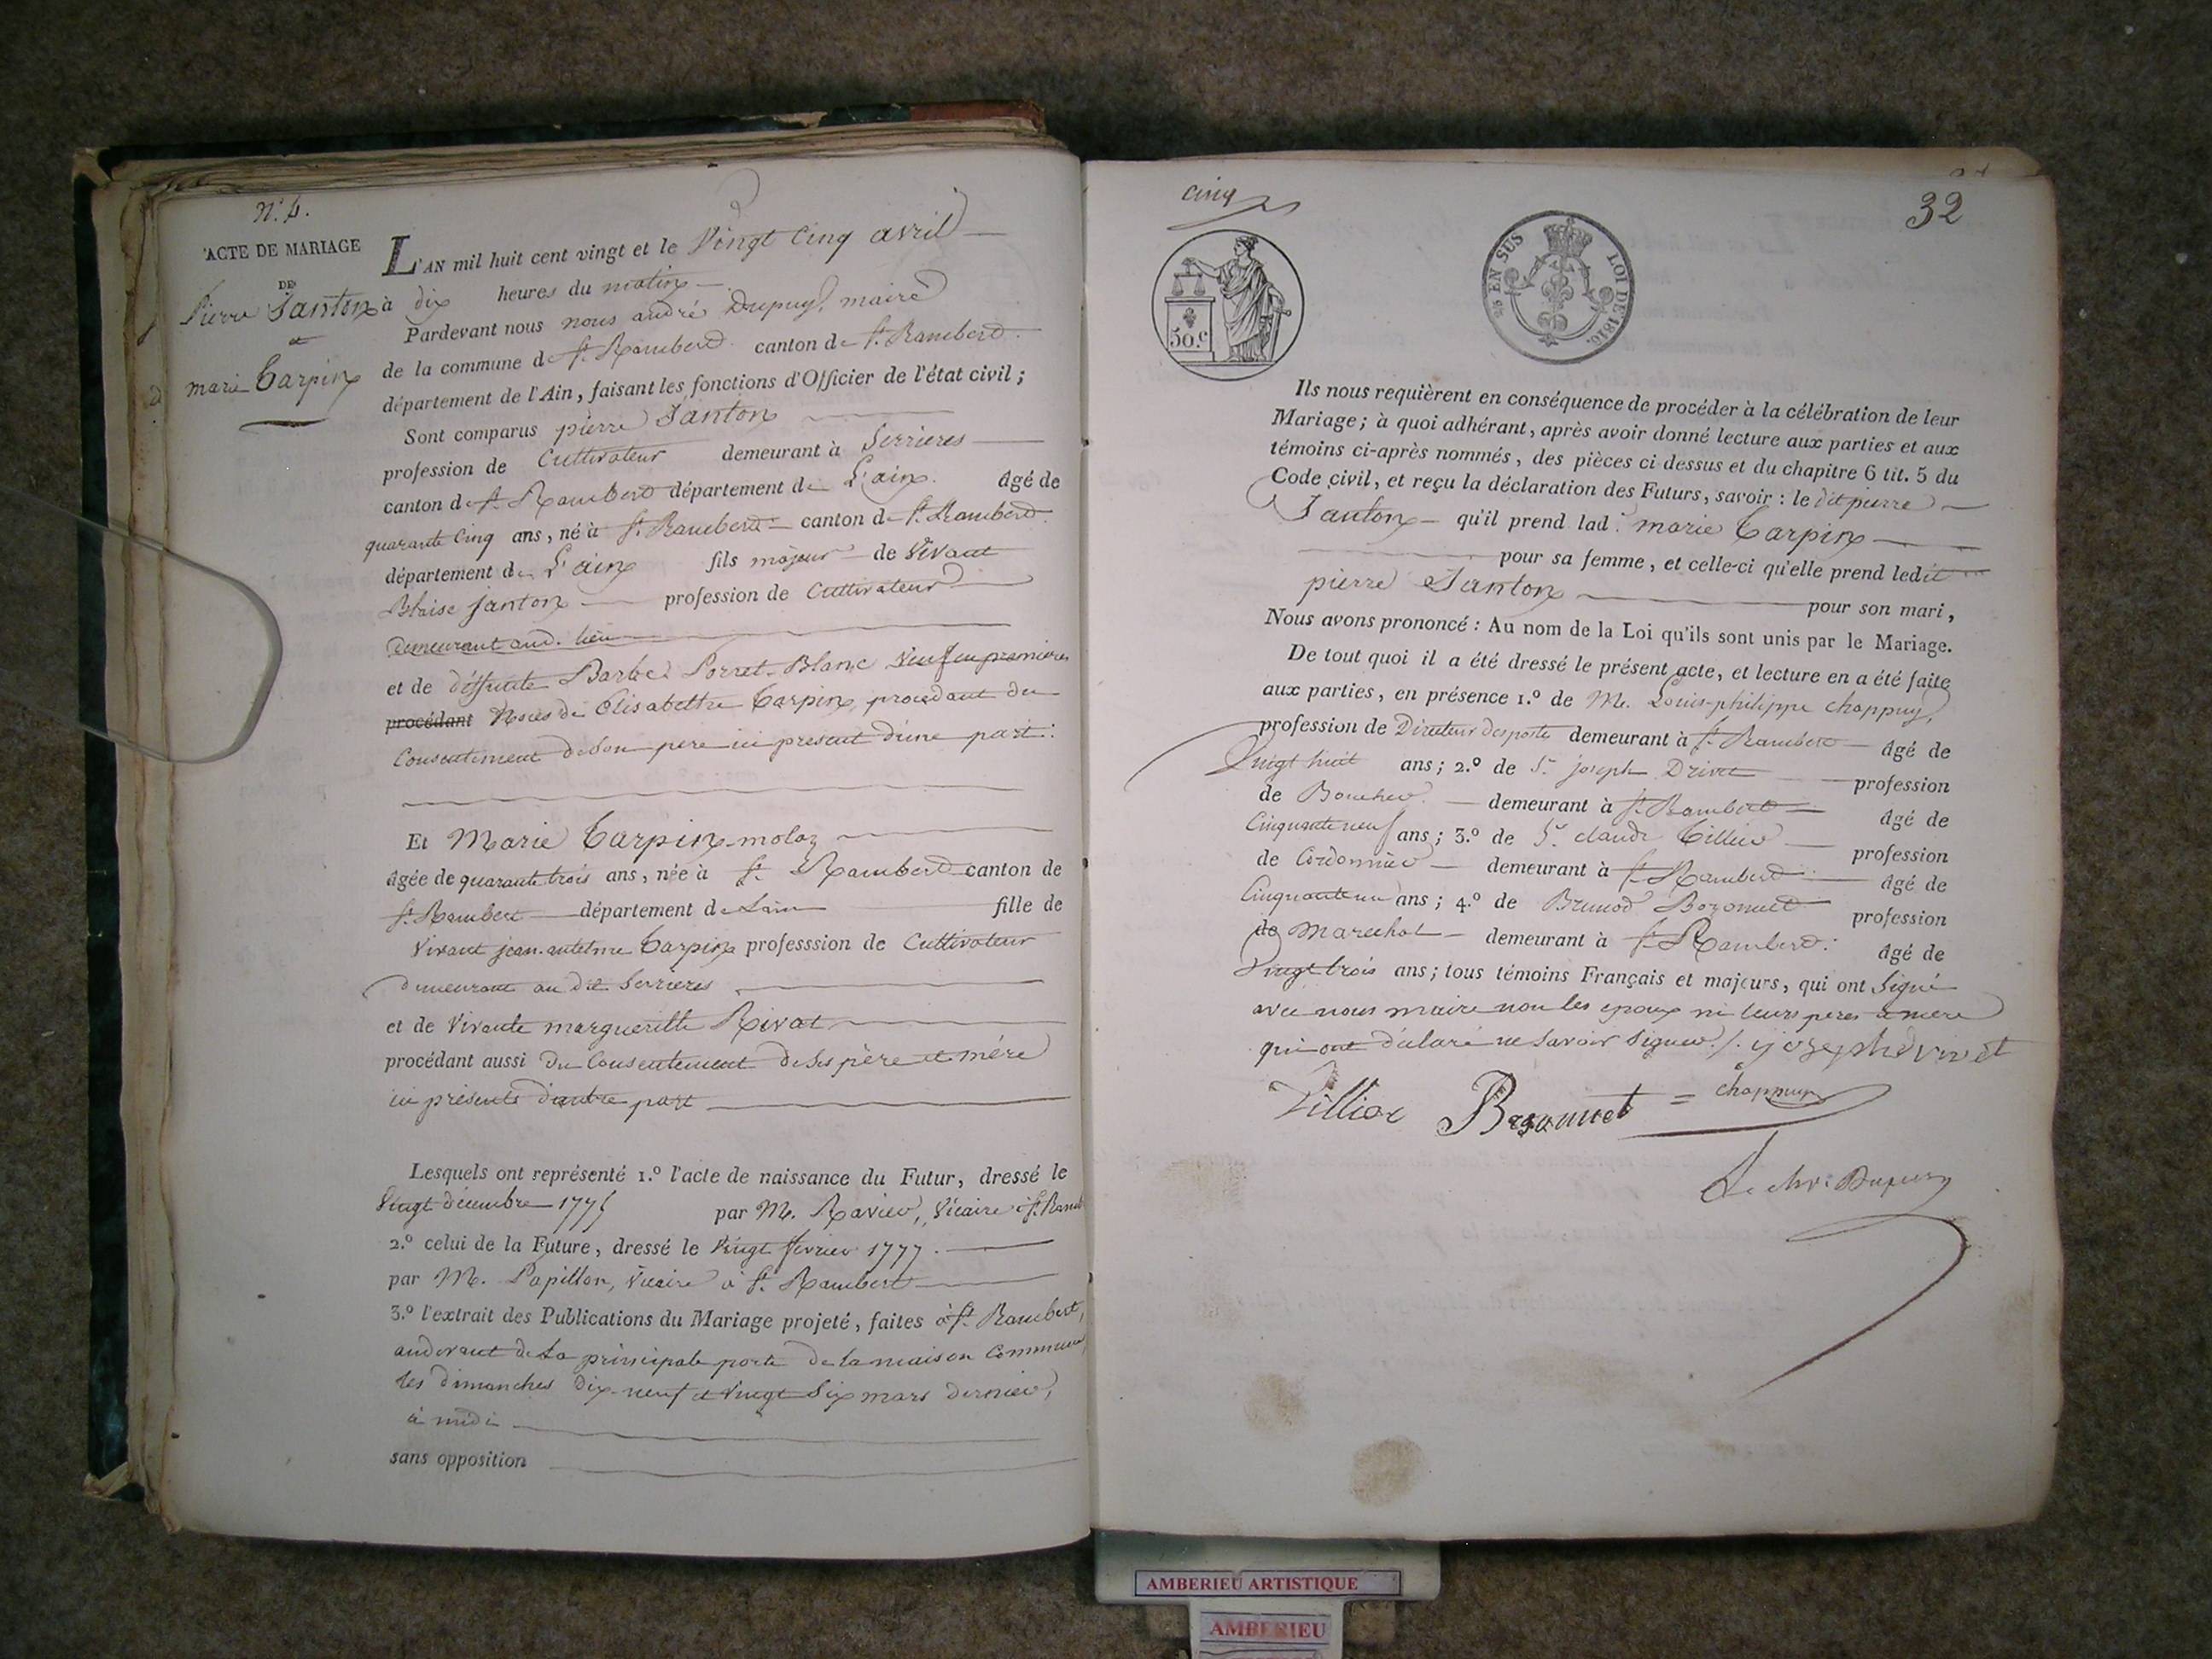 n.° 4.
ACTE DE MARIAGE
DE
Pierre Janton
et
marie Carpin
L'AN mil huit cent vingt et le Vingt Cinq avril
à dix heures du matin
Pardevant nous nous andré Dupuy, maire
de la commune de St. Rambert canton de St. Rambert
département de l'Ain, faisant les fonctions d'Officier de l'état civil;
Sont comparus pierre Janton
profession de Cultivateur demeurant à Serrieres
canton de St. Rambert département de L'ain. âgé de
quarante Cinq ans, né à St. Rambert canton de St. Rambert
département de L'ain fils majeur de Vivant
Blaise Janton profession de Cultivateur
demeurant aud. lieu
et de deffunte Barbe Porret-Blanc Veuf en premieres
procédant Noces de Elisabethe Carpin, procedant du
Consentement de son pere ici present d'une part.
Et Marie Carpin-molaz
âgée de quarante trois ans, née à St. Rambert canton de
St. Rambert département de Lain fille de
Vivant jean-antelme Carpin professsion de Cultivateur
demeurant au dit Serrieres
et de Vivante margueritte Rivat
procédant aussi du Consentement de ses père et mère
ici présents d'autre part
Lesquels ont représenté 1.° l'acte de naissance du Futur, dressé le
Vingt décembre 1775 par M. Ravier, Vicaire à St. Ramb
2.° celui de la Future, dressé le Vingt fevrier 1777.
par M. Papillon, Vicaire à St. Rambert
3.° l'extrait des Publications du Mariage projeté, faites à St. Rambert,
au devant de la principale porte de la maison Commune,
les dimanches dix-neuf et Vingt Six mars dernier,
à midi
sans opposition
cinq
32
50.c
25 EN SUS LOI DE 1816.
Ils nous requièrent en conséquence de procéder à la célébration de leur
Mariage; à quoi adhérant, après avoir donné lecture aux parties et aux
témoins ci-après nommés, des pièces ci dessus et du chapitre 6 tit. 5 du
Code civil, et reçu la déclaration des Futurs, savoir: le dit pierre
Janton qu'il prend lad. marie Carpin
pour sa femme, et celle-ci qu'elle prend ledit
pierre Janton pour son mari,
Nous avons prononcé: Au nom de la Loi qu'ils sont unis par le Mariage.
De tout quoi il a été dressé le présent acte, et lecture en a été faite
aux parties, en présence 1.° de M. Louis-philippe Chappuy,
profession de Directeur des poste demeurant à St. Rambert âgé de
Vingt huit ans; 2.° de Sr. joseph Drivet profession
de Boucher demeurant à St. Rambert âgé de
Cinquante neuf ans; 3.° de Sr. claude Tillier profession
de Cordonnier demeurant à St. Rambert âgé de
Cinquante un ans; 4.° de Brunod Bozonnet profession
de Marechal demeurant à St. Rambert. âgé de
Vingt trois ans; tous témoins Français et majeurs, qui ont Signé
avec nous maire non les epoux ni leurs peres a mere
qui ont déclaré ne savoir Signer /. joseph drivet
Tillier Bozonnet = chappuy
Le chr. Dupuy
AMBERIEU ARTISTIQUE
AMBERIEU